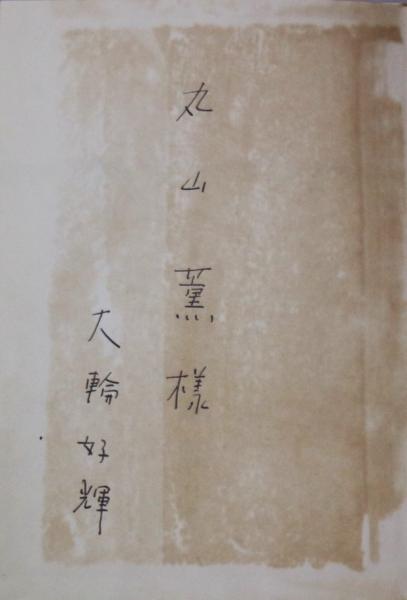 丸山薫様
大輪好輝